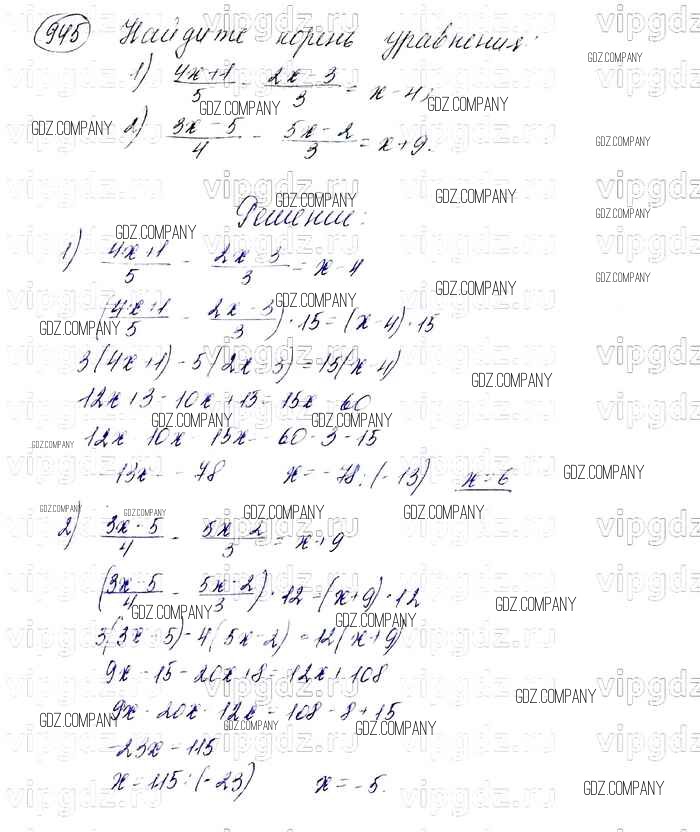 945 Найдите корень уравнения:
1) (4x+1)/5 - (2x-3)/3 = x-4;
2) (3x-5)/4 - (5x-2)/3 = x+9.
Решение:
1) (4x+1)/5 - (2x-3)/3 = x-4
((4x+1)/5 - (2x-3)/3)·15=(x-4)·15
3(4x+1)-5(2x-3)=15(x-4)
12x+3-10x+15=15x-60
12x-10x-15x=-60-3-15
-13x=-78 x=-78:(-13) x=6
2) (3x-5)/4 - (5x-2)/3 = x+9
((3x-5)/4 - (5x-2)/3)·12=(x+9)·12
3(3x-5)-4(5x-2)=12(x+9)
9x-15-20x+8=12x+108
9x-20x-12x=108-8+15
-23x=115
x=115:(-23) x=-5.
GDZ.COMPANY
vipgdz.ru